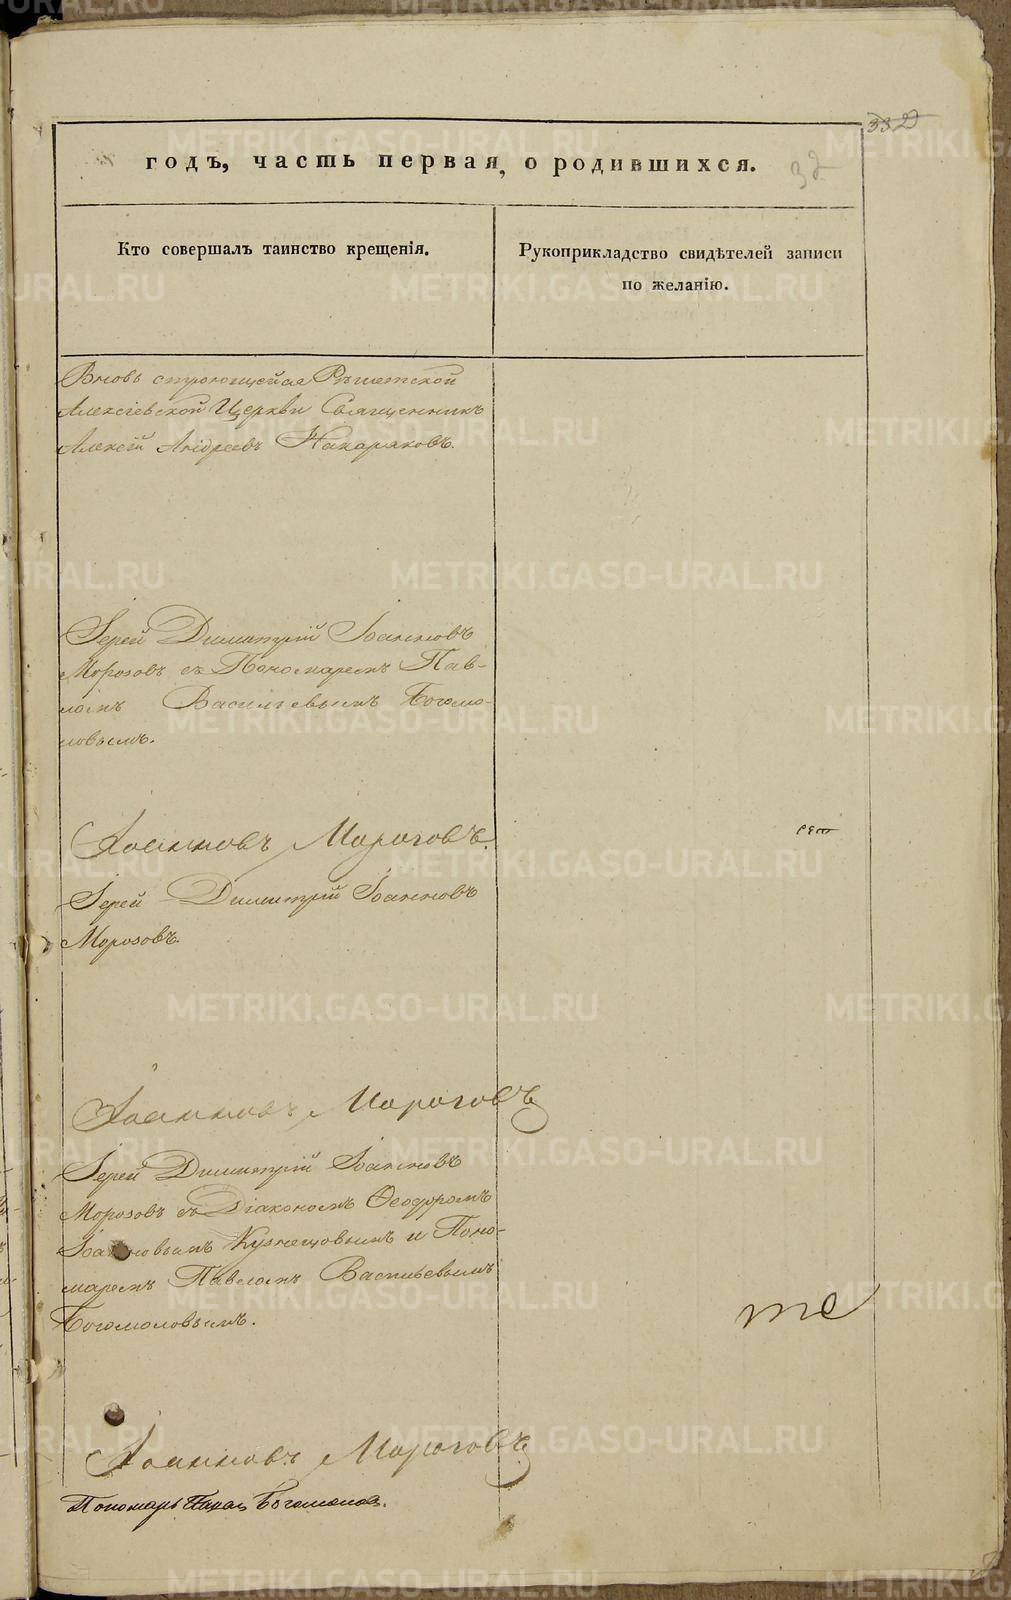 332
32
годъ, часть первая, о родившихся.
Кто совершалъ таинство крещенія.
Рукоприкладство свидѣтелей записи
по желанію.
Вновь строющейся Рѣшетской
Алексіевской Церкви Священникъ
Алексій Андреевъ Накаряковъ.
Іерей Димитрій Іоанновъ
Морозовъ съ Пономаремъ Пав-
ломъ Васильевымъ Богомо-
ловымъ.
Іоанновъ Морозовъ.
Іерей Димитрій Іоанновъ
Морозовъ.
Іоанновъ Морозовъ
Іерей Димитрій Іоанновъ
Морозовъ съ Діакономъ Ѳеодоромъ
Іоанновымъ Кузнецовымъ и Поно-
маремъ Павломъ Васильевымъ
Богомоловымъ.
те
Іоанновъ Морозовъ
Пономарь Павелъ Богомоловъ.
METRIKI.GASO-URAL.RU